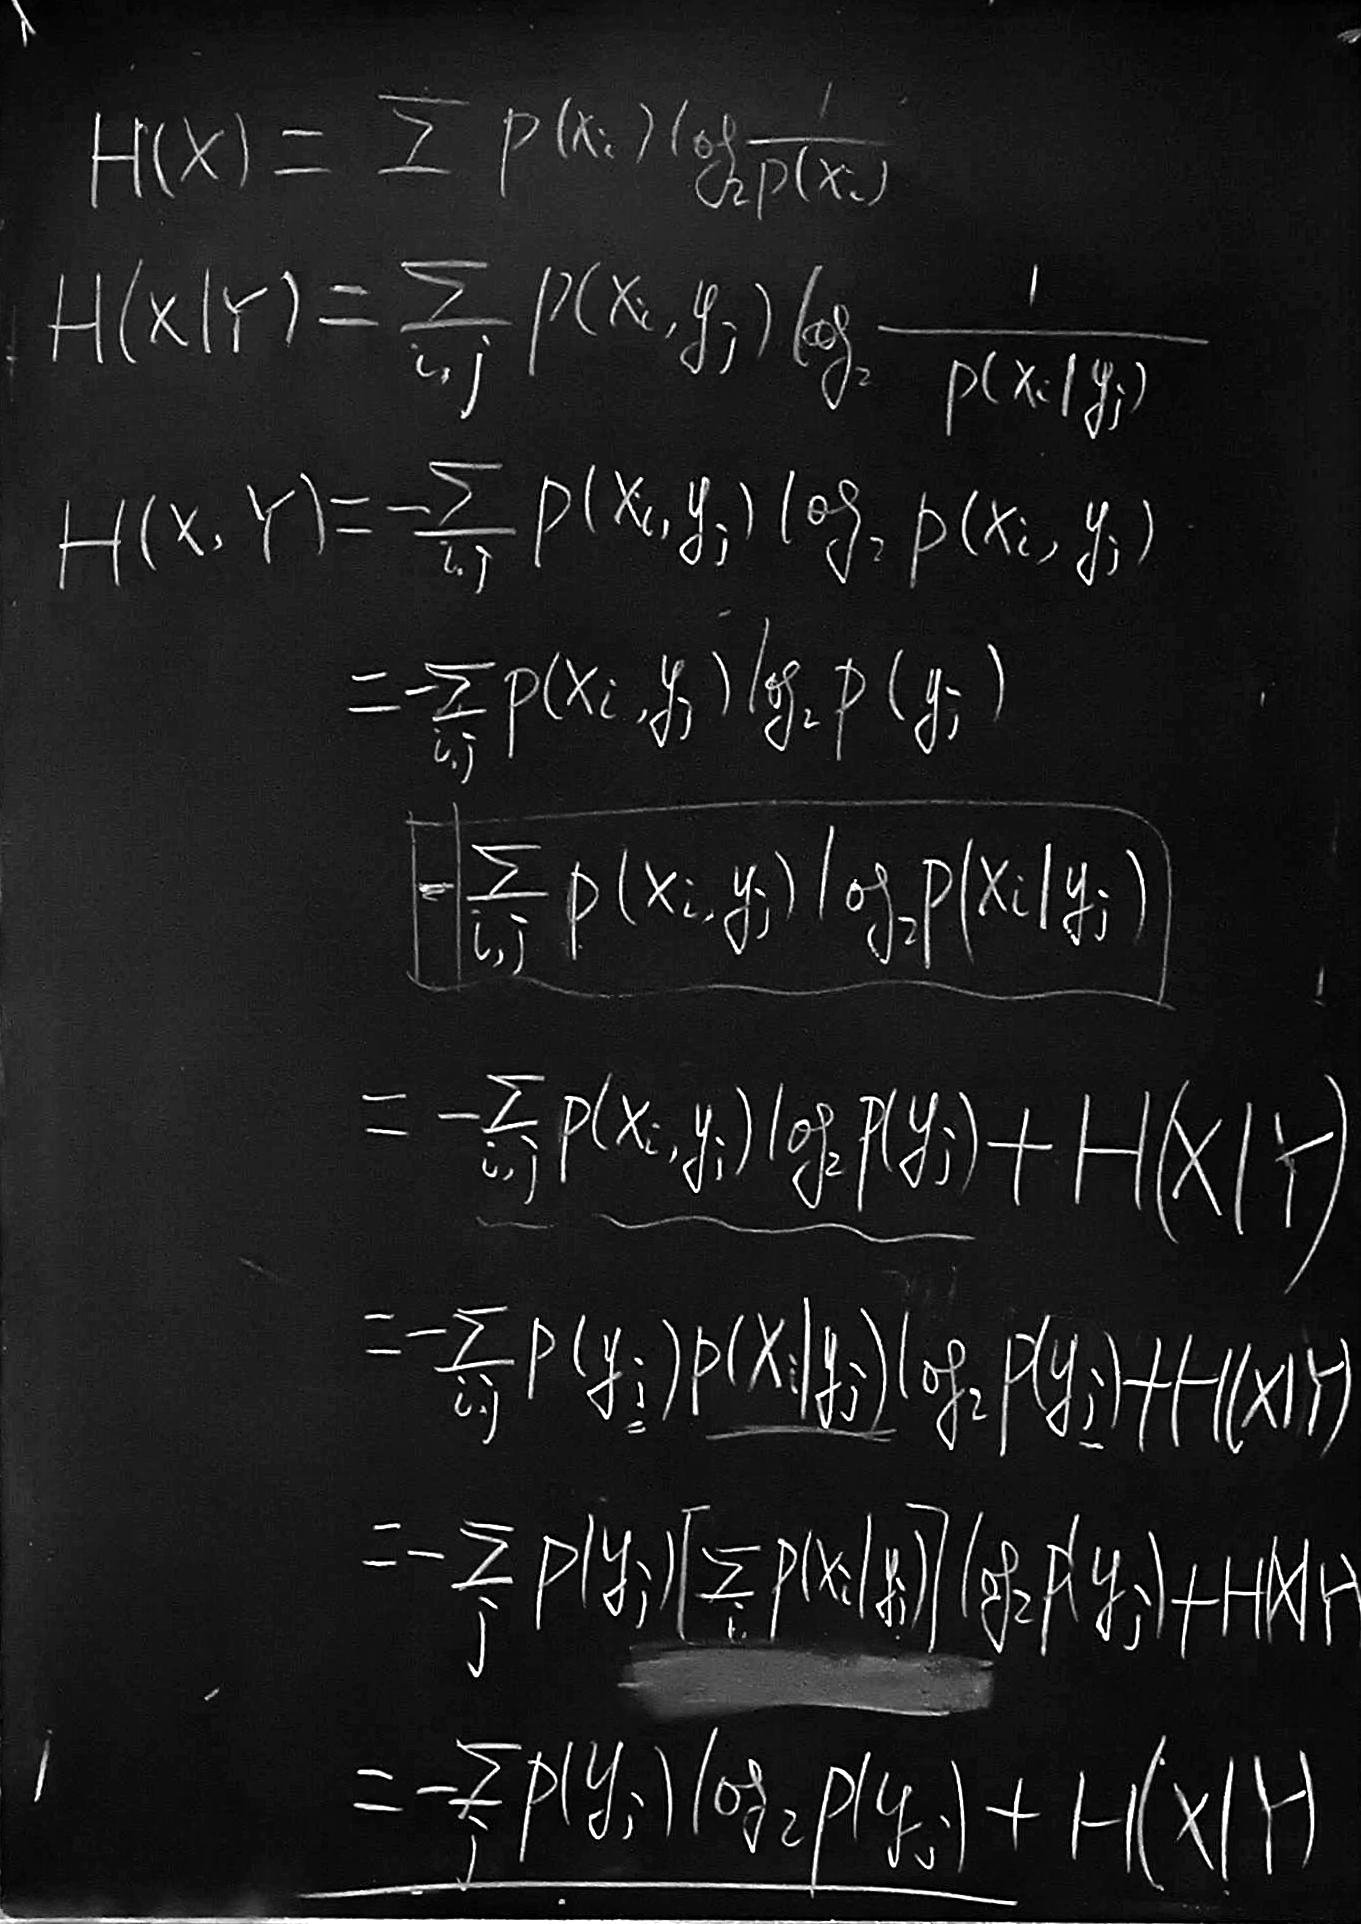 H(X) = Σ p(xᵢ) log₂ 1/p(xᵢ)
H(X|Y) = Σ_{i,j} p(xᵢ, yⱼ) log₂ 1/p(xᵢ|yⱼ)
H(X, Y) = -Σ_{i,j} p(xᵢ, yⱼ) log₂ p(xᵢ, yⱼ)
= -Σ_{i,j} p(xᵢ, yⱼ) log₂ p(yⱼ)
- Σ_{i,j} p(xᵢ, yⱼ) log₂ p(xᵢ|yⱼ)
= -Σ_{i,j} p(xᵢ, yⱼ) log₂ p(yⱼ) + H(X|Y)
= -Σ_{i,j} p(yⱼ) p(xᵢ|yⱼ) log₂ p(yⱼ) + H(X|Y)
= -Σ_j p(yⱼ) [Σ_i p(xᵢ|yⱼ)] log₂ p(yⱼ) + H(X|Y
= -Σ_j p(yⱼ) log₂ p(yⱼ) + H(X|Y)